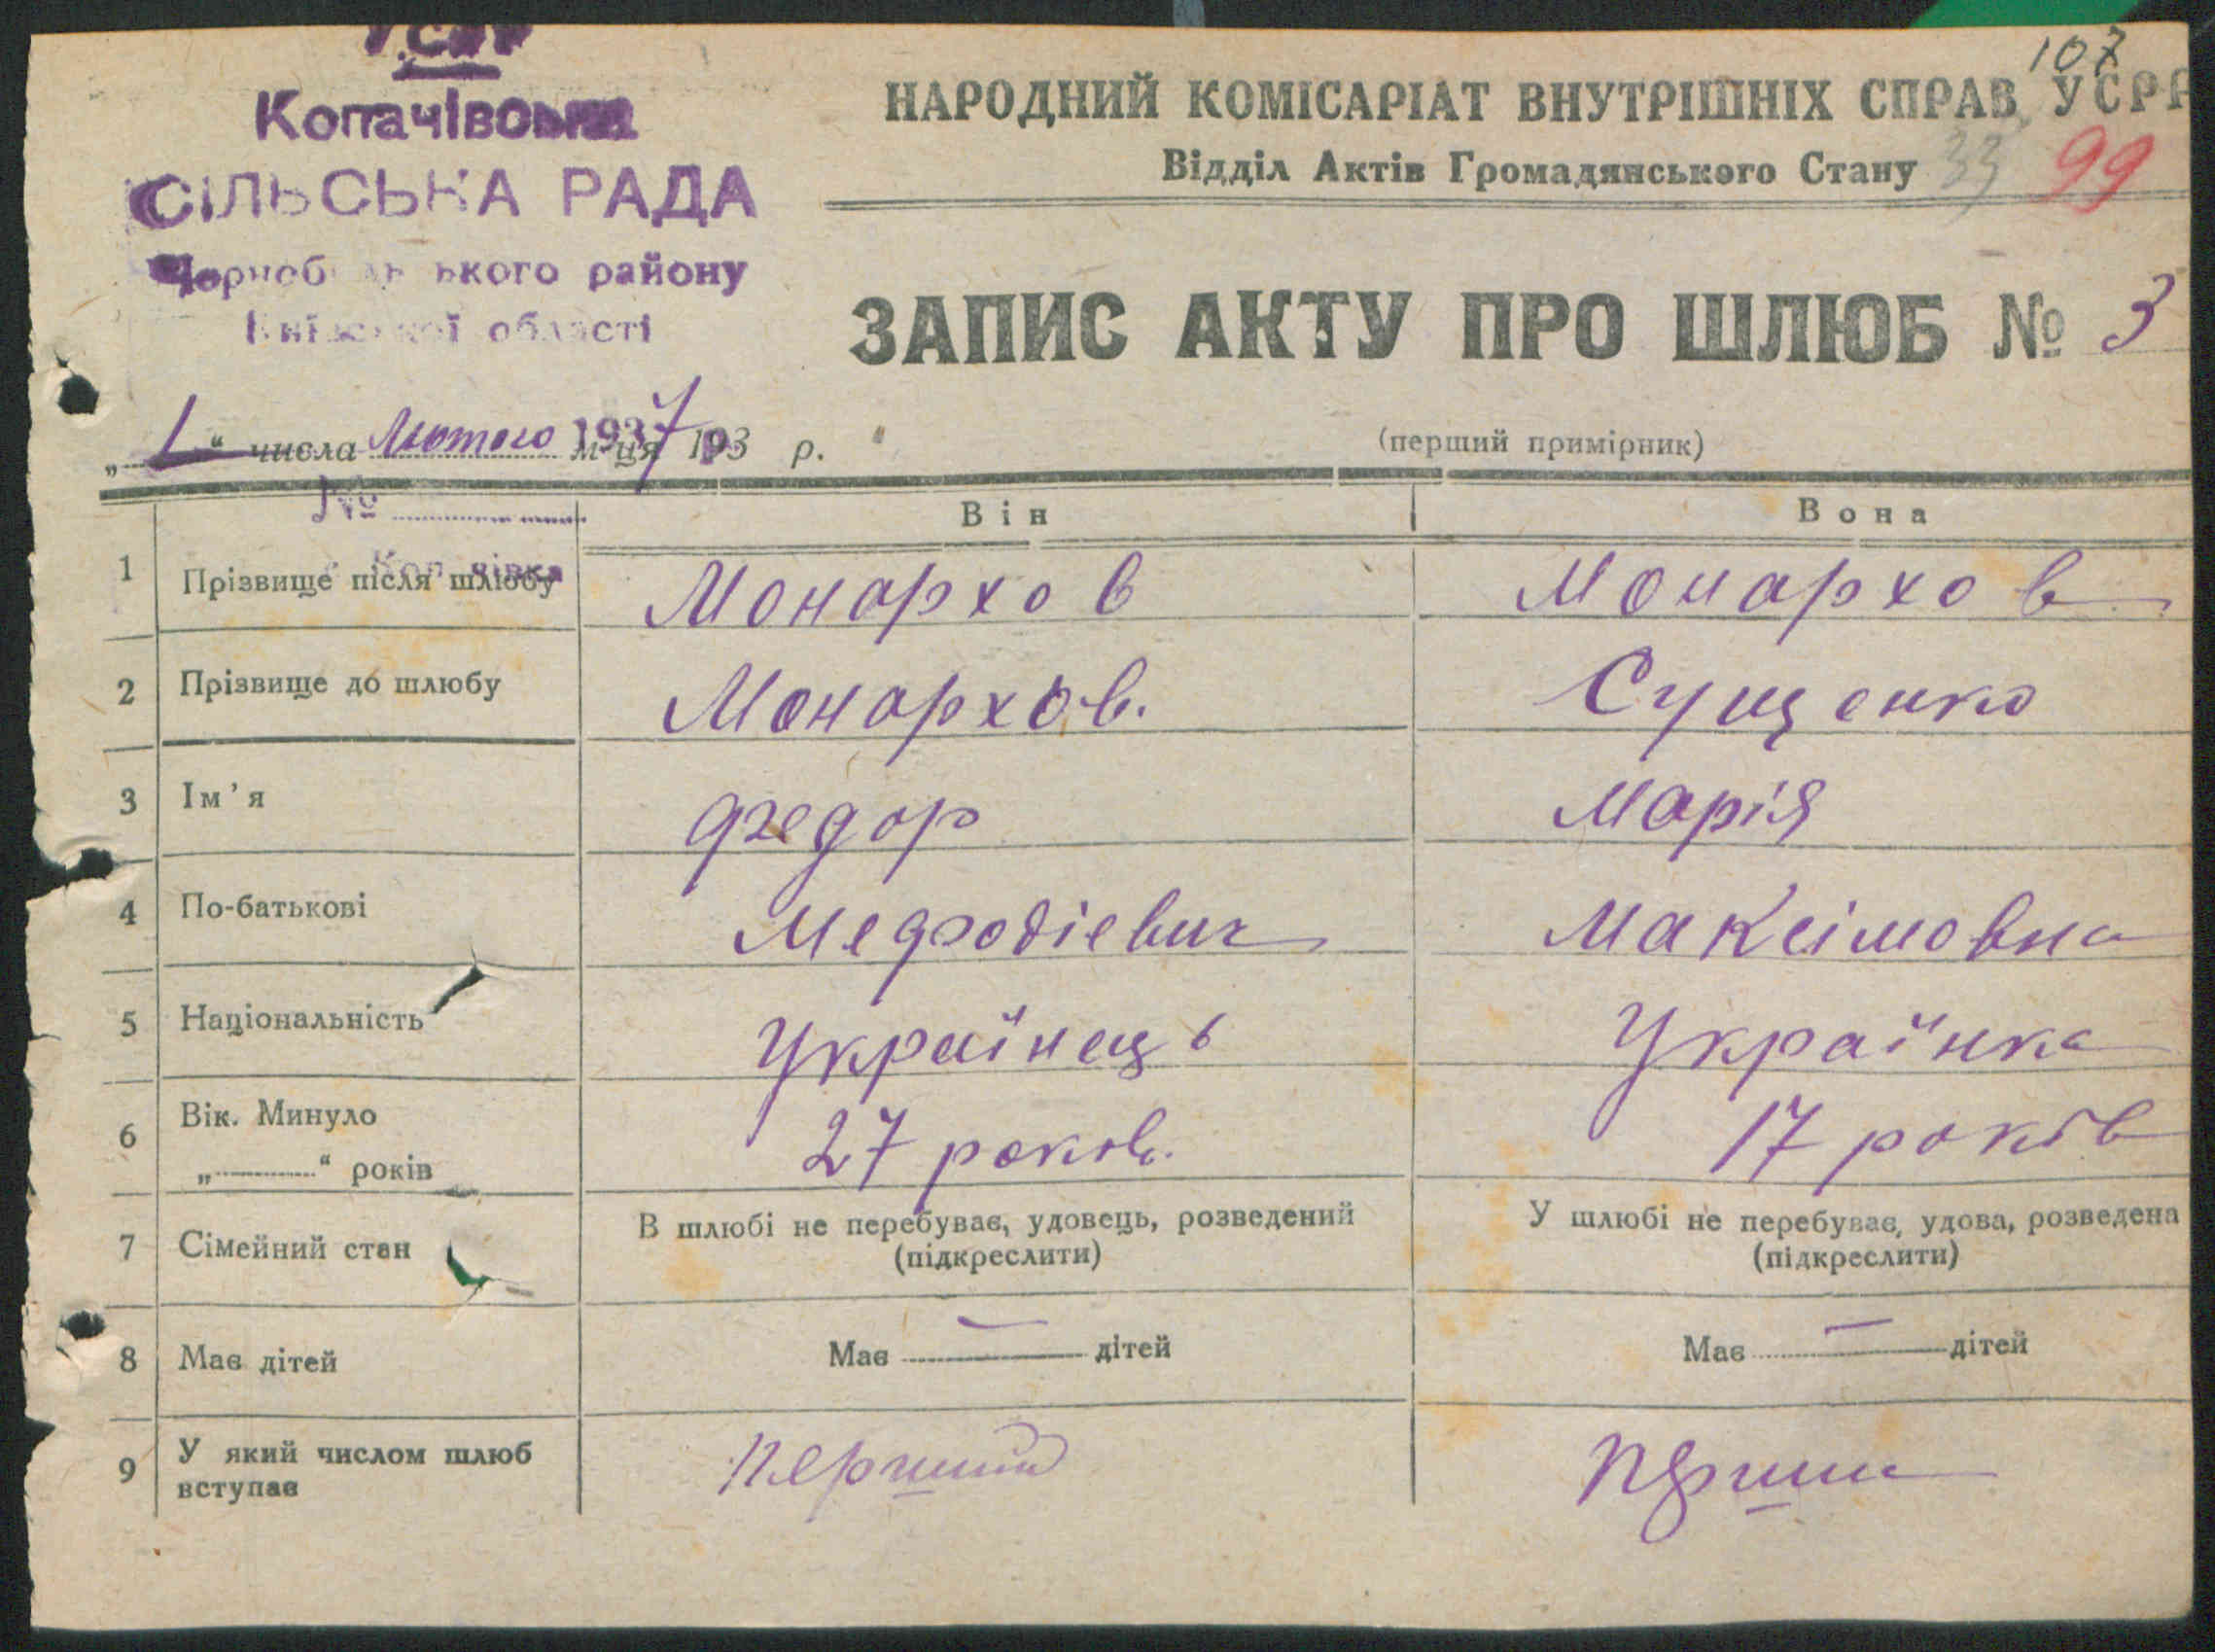 УСРР
Копачівська
СІЛЬСЬКА РАДА
Чорнобильського району
Київської області
107
НАРОДНИЙ КОМІСАРІАТ ВНУТРІШНІХ СПРАВ УСРР
Відділ Актів Громадянського Стану 33 99
ЗАПИС АКТУ ПРО ШЛЮБ № 3
„ 1 “ числа Лютого м-ця 1937 193 р.
(перший примірник)
№
Він Вона
1 Прізвище після шлюбу Монархов Монархов
2 Прізвище до шлюбу Монархов. Сущенко
3 Ім'я Федор Марія
4 По-батькові Мефодієвич Максімовна
5 Національність Українець Українка
6 Вік. Минуло 27 років. 17 років
„ “ років
7 Сімейний стан В шлюбі не перебуває, удовець, розведений У шлюбі не перебуває, удова, розведена
(підкреслити) (підкреслити)
8 Має дітей Має — дітей Має — дітей
9 У який числом шлюб Перший
вступає